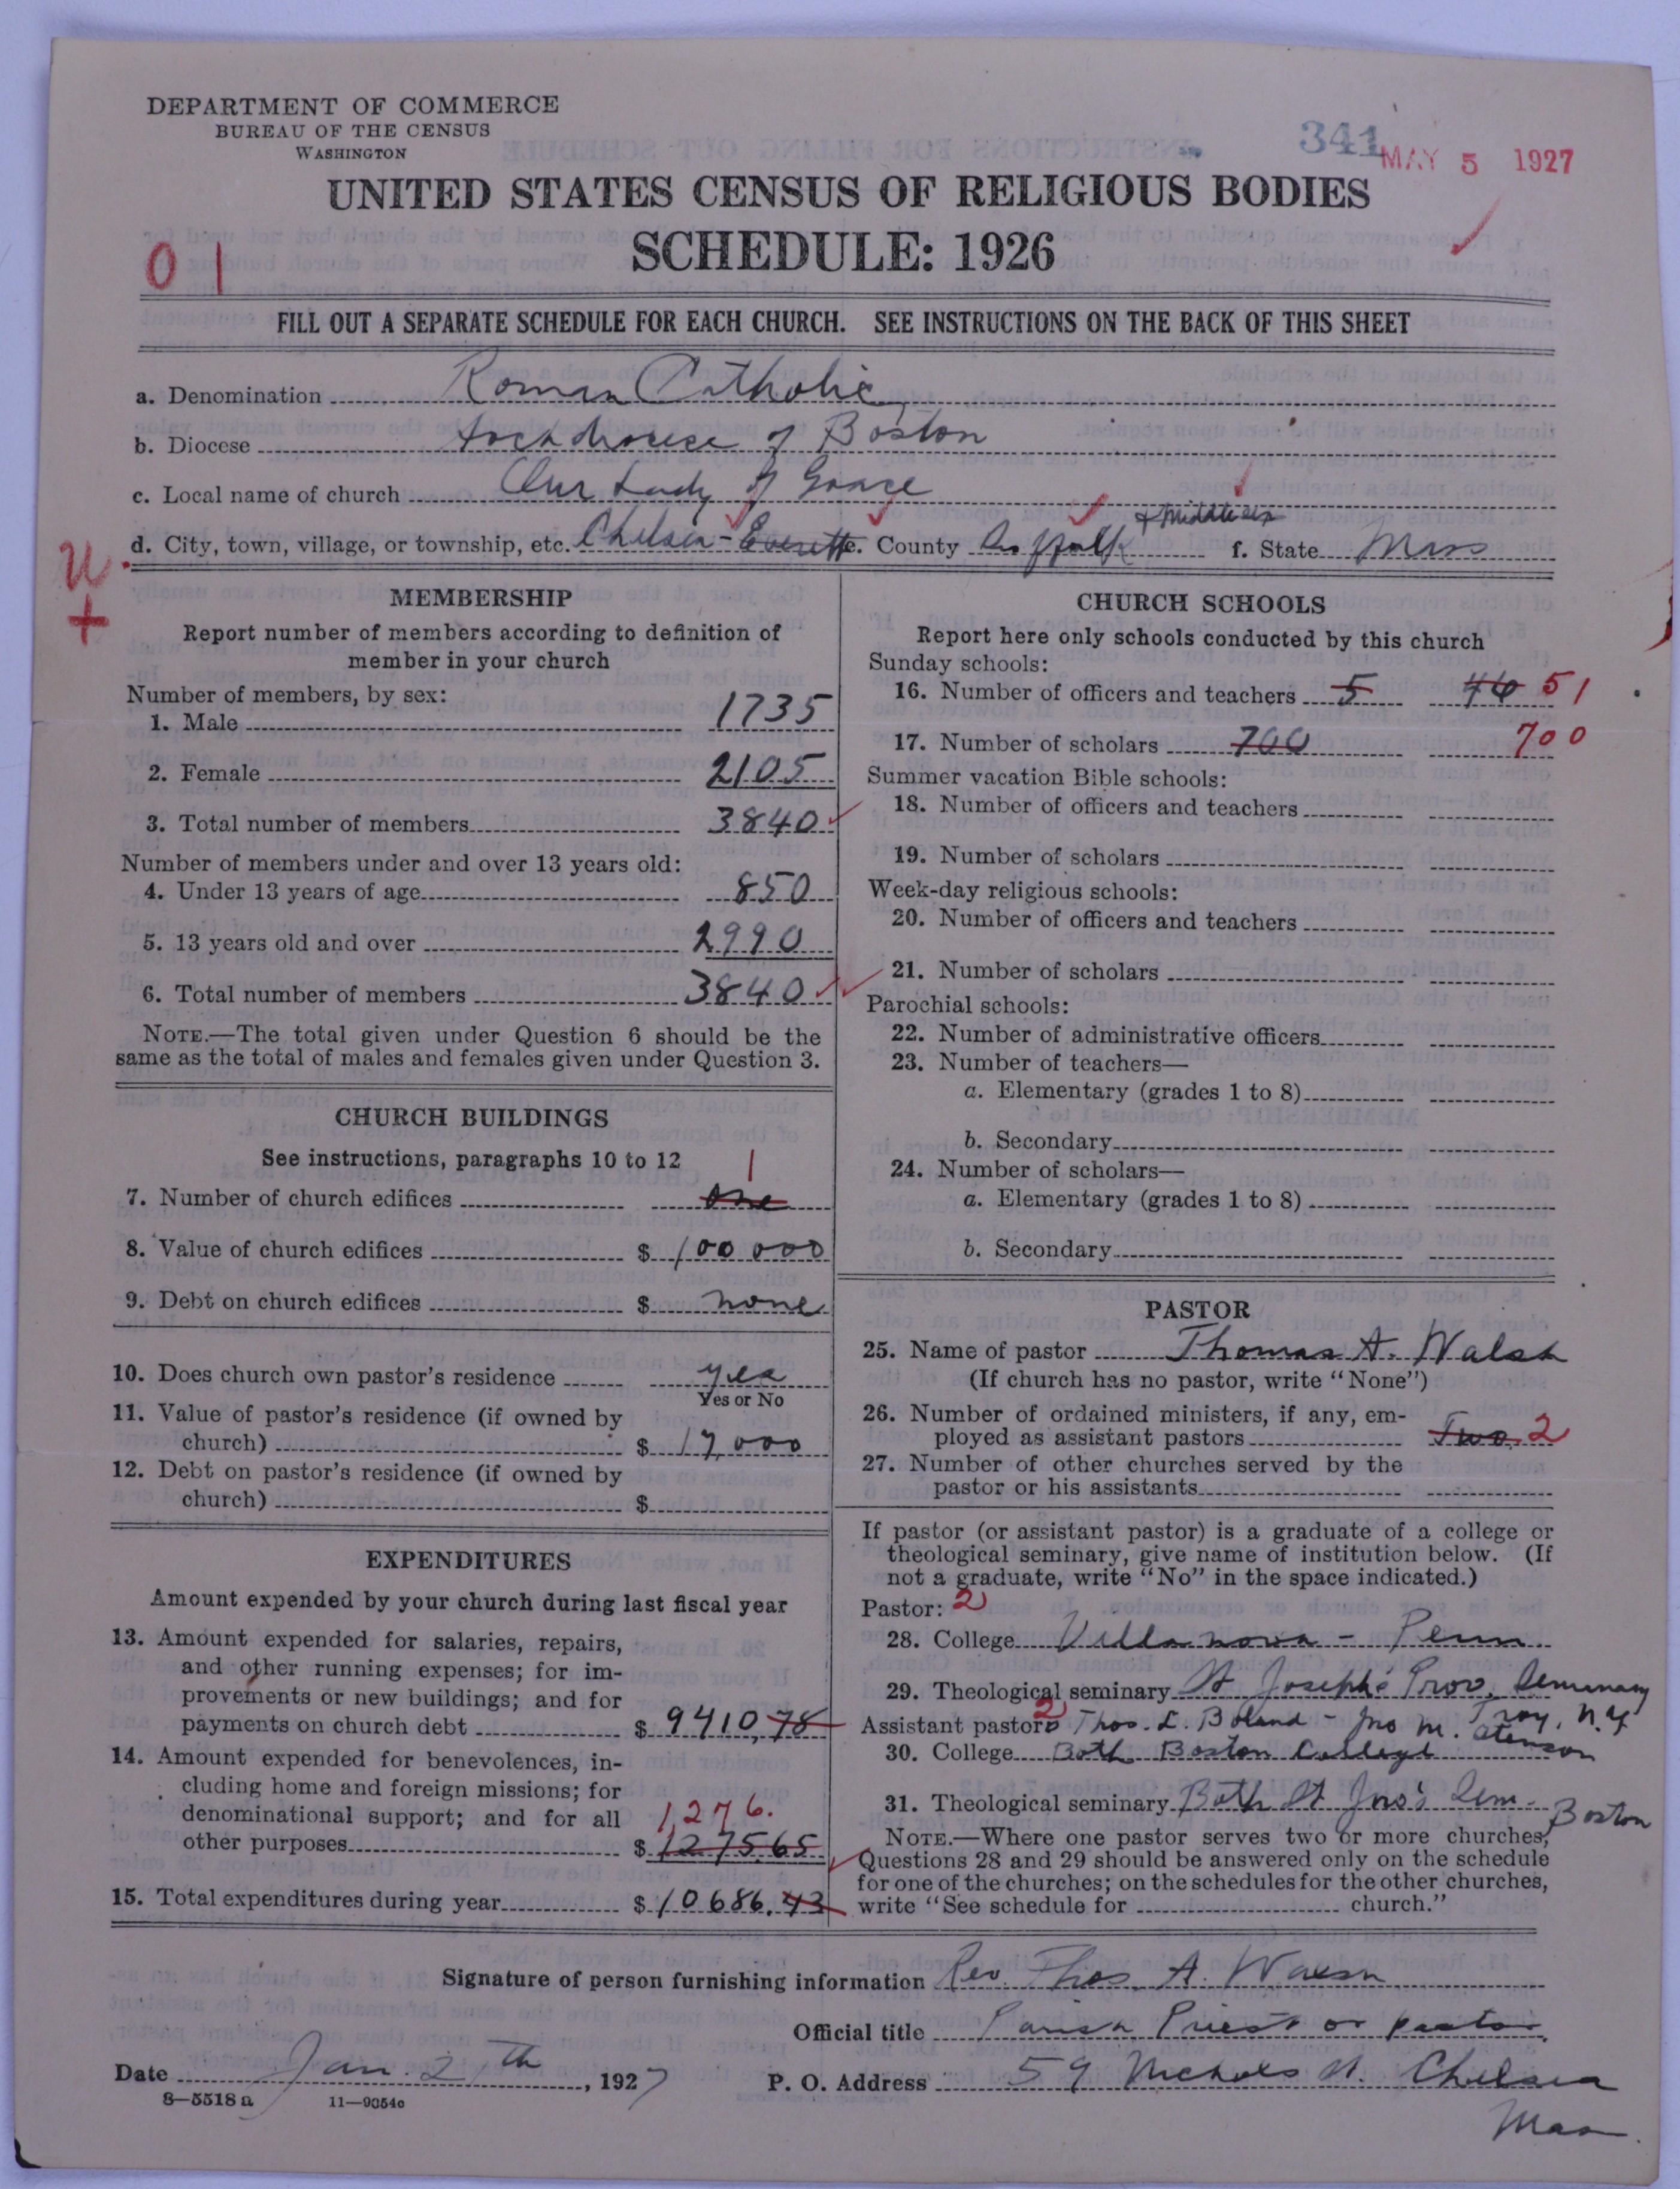 DEPARTMENT OF COMMERCE
BUREAU OF THE CENSUS
WASHINGTON
341
MAY 5 1927
UNITED STATES CENSUS OF RELIGIOUS BODIES
SCHEDULE: 1926
01
FILL OUT A SEPARATE SCHEDULE FOR EACH CHURCH. SEE INSTRUCTIONS ON THE BACK OF THIS SHEET
a. Denomination Roman Catholic
b. Diocese Archdiocese of Boston
c. Local name of church Our Lady of Grace
d. City, town, village, or township, etc. Chelsea - Everett e. County Suffolk + Middlesex f. State Mass
U.
+
MEMBERSHIP
Report number of members according to definition of
member in your church
Number of members, by sex:
1. Male 1735
2. Female 2105
3. Total number of members 3840
Number of members under and over 13 years old:
4. Under 13 years of age 850
5. 13 years old and over 2990
6. Total number of members 3840
NOTE.—The total given under Question 6 should be the
same as the total of males and females given under Question 3.
CHURCH BUILDINGS
See instructions, paragraphs 10 to 12
7. Number of church edifices one 1
8. Value of church edifices $ 100 000
9. Debt on church edifices $ none
10. Does church own pastor's residence yes
Yes or No
11. Value of pastor's residence (if owned by
church) $ 17,000
12. Debt on pastor's residence (if owned by
church) $
EXPENDITURES
Amount expended by your church during last fiscal year
13. Amount expended for salaries, repairs,
and other running expenses; for im-
provements or new buildings; and for
payments on church debt $ 9410,78
14. Amount expended for benevolences, in-
cluding home and foreign missions; for
denominational support; and for all
1,276.
other purposes $ 1275.65
15. Total expenditures during year $ 10686.43
CHURCH SCHOOLS
Report here only schools conducted by this church
Sunday schools:
16. Number of officers and teachers 5 46 51
17. Number of scholars 700 700
Summer vacation Bible schools:
18. Number of officers and teachers
19. Number of scholars
Week-day religious schools:
20. Number of officers and teachers
21. Number of scholars
Parochial schools:
22. Number of administrative officers
23. Number of teachers—
a. Elementary (grades 1 to 8)
b. Secondary
24. Number of scholars—
a. Elementary (grades 1 to 8)
b. Secondary
PASTOR
25. Name of pastor Thomas A. Walsh
(If church has no pastor, write "None")
26. Number of ordained ministers, if any, em-
ployed as assistant pastors Two 2
27. Number of other churches served by the
pastor or his assistants
If pastor (or assistant pastor) is a graduate of a college or
theological seminary, give name of institution below. (If
not a graduate, write "No" in the space indicated.)
Pastor: 2
28. College Villanova - Penn.
29. Theological seminary St Joseph's Prov. Seminary
Troy, N.Y
Assistant pastors 2 Thos. L. Boland - Jno M.
30. College Both Boston College
31. Theological seminary Both St Jno's Sem. Boston
NOTE.—Where one pastor serves two or more churches,
Questions 28 and 29 should be answered only on the schedule
for one of the churches; on the schedules for the other churches,
write "See schedule for church."
Signature of person furnishing information Rev. Thos. A. Walsh
Official title Parish Priest or pastor.
Date Jan. 2th, 1927 P. O. Address 59 Nichols St. Chelsea
Mass.
8—5518a 11—9054c